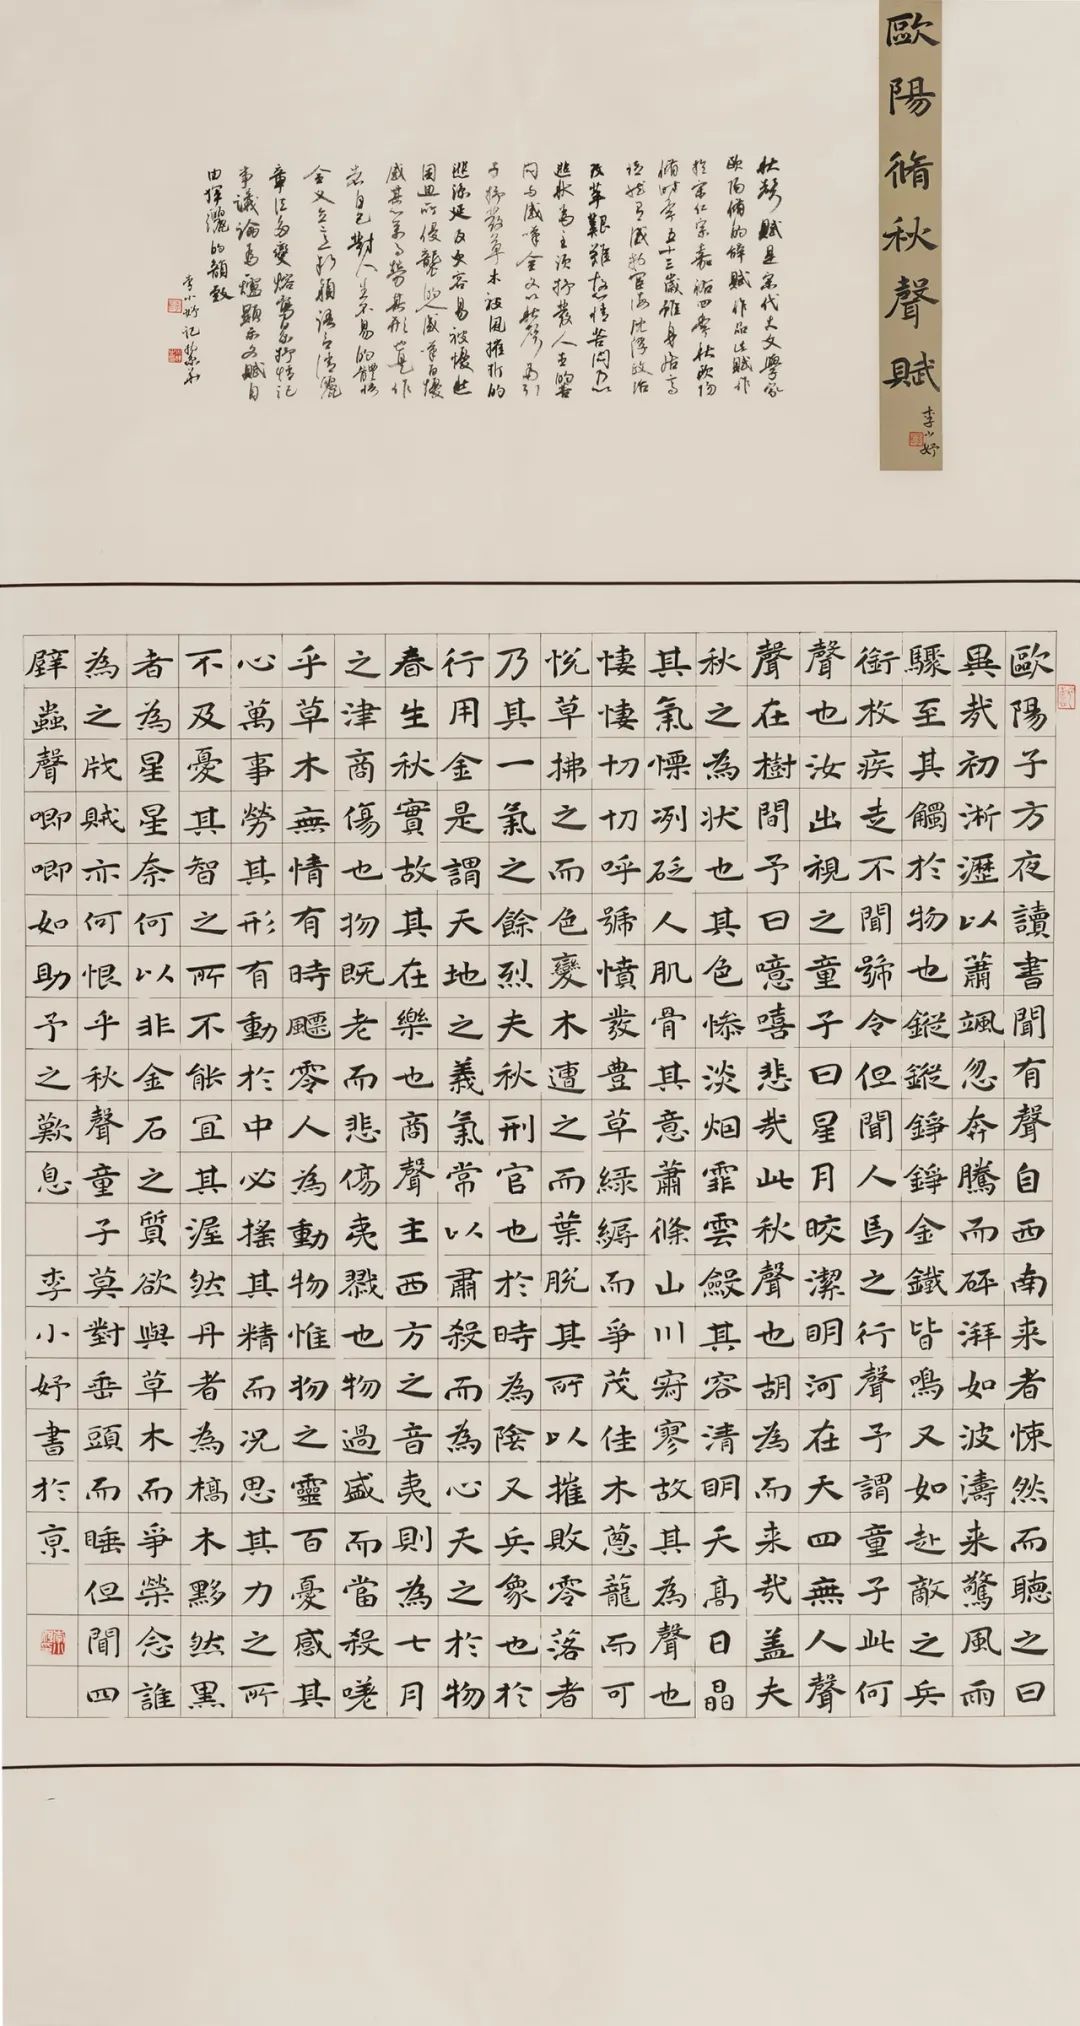 歐陽脩秋聲賦
李小妤
秋聲賦是宋代大文學家
歐陽脩的辭賦作品此賦作
於宋仁宗嘉祐四年秋歐陽
脩時年五十三歲雖身居高
位然有感於宦海沈浮政治
改革艱難故情苦悶乃以
悲秋為主 抒發人生的苦
悶與感嘆全文以秋聲為引
子抒發草木被風摧折的
悲涼延及更容易被憂愁
困思所侵襲的人感嘆百憂
感其心萬事勞其形也是作
者自己對人生不易的體悟
全文立意新穎語言清麗
章法多變熔寫景抒情記
事議論為一爐顯示文賦自
由揮灑的韻致
李小妤記
歐陽子方夜讀書聞有聲自西南来者悚然而聽之曰
異哉初淅瀝以蕭颯忽奔騰而砰湃如波濤来驚風雨
驟至其觸於物也鏦鏦錚錚金鐵皆鳴又如赴敵之兵
銜枚疾走不聞號令但聞人馬之行聲予謂童子此何
聲也汝出視之童子曰星月皎潔明河在天四無人聲
聲在樹間予曰噫嘻悲哉此秋聲也胡為而来哉盖夫
秋之為狀也其色慘淡烟霏雲斂其容清明天高日晶
其氣慄冽砭人肌骨其意蕭條山川寂寥故其為聲也
悽悽切切呼號憤發豐草綠縟而爭茂佳木蔥蘢而可
悅草拂之而色變木遭之而葉脫其所以摧敗零落者
乃其一氣之餘烈夫秋刑官也於時為陰又兵象也於
行用金是謂天地之義氣常以肅殺而為心天之於物
春生秋實故其在樂也商聲主西方之音夷則為七月
之津商傷也物既老而悲傷夷戮也物過盛而當殺嗟
乎草木無情有時飄零人為動物惟物之靈百憂感其
心萬事勞其形有動於中必搖其精而况思其力之所
不及憂其智之所不能宜其渥然丹者為槁木黟然黑
者為星星奈何以非金石之質欲與草木而爭榮念誰
為之戕賊亦何恨乎秋聲童子莫對垂頭而睡但聞四
壁蟲聲唧唧如助予之歎息 李小妤書於京